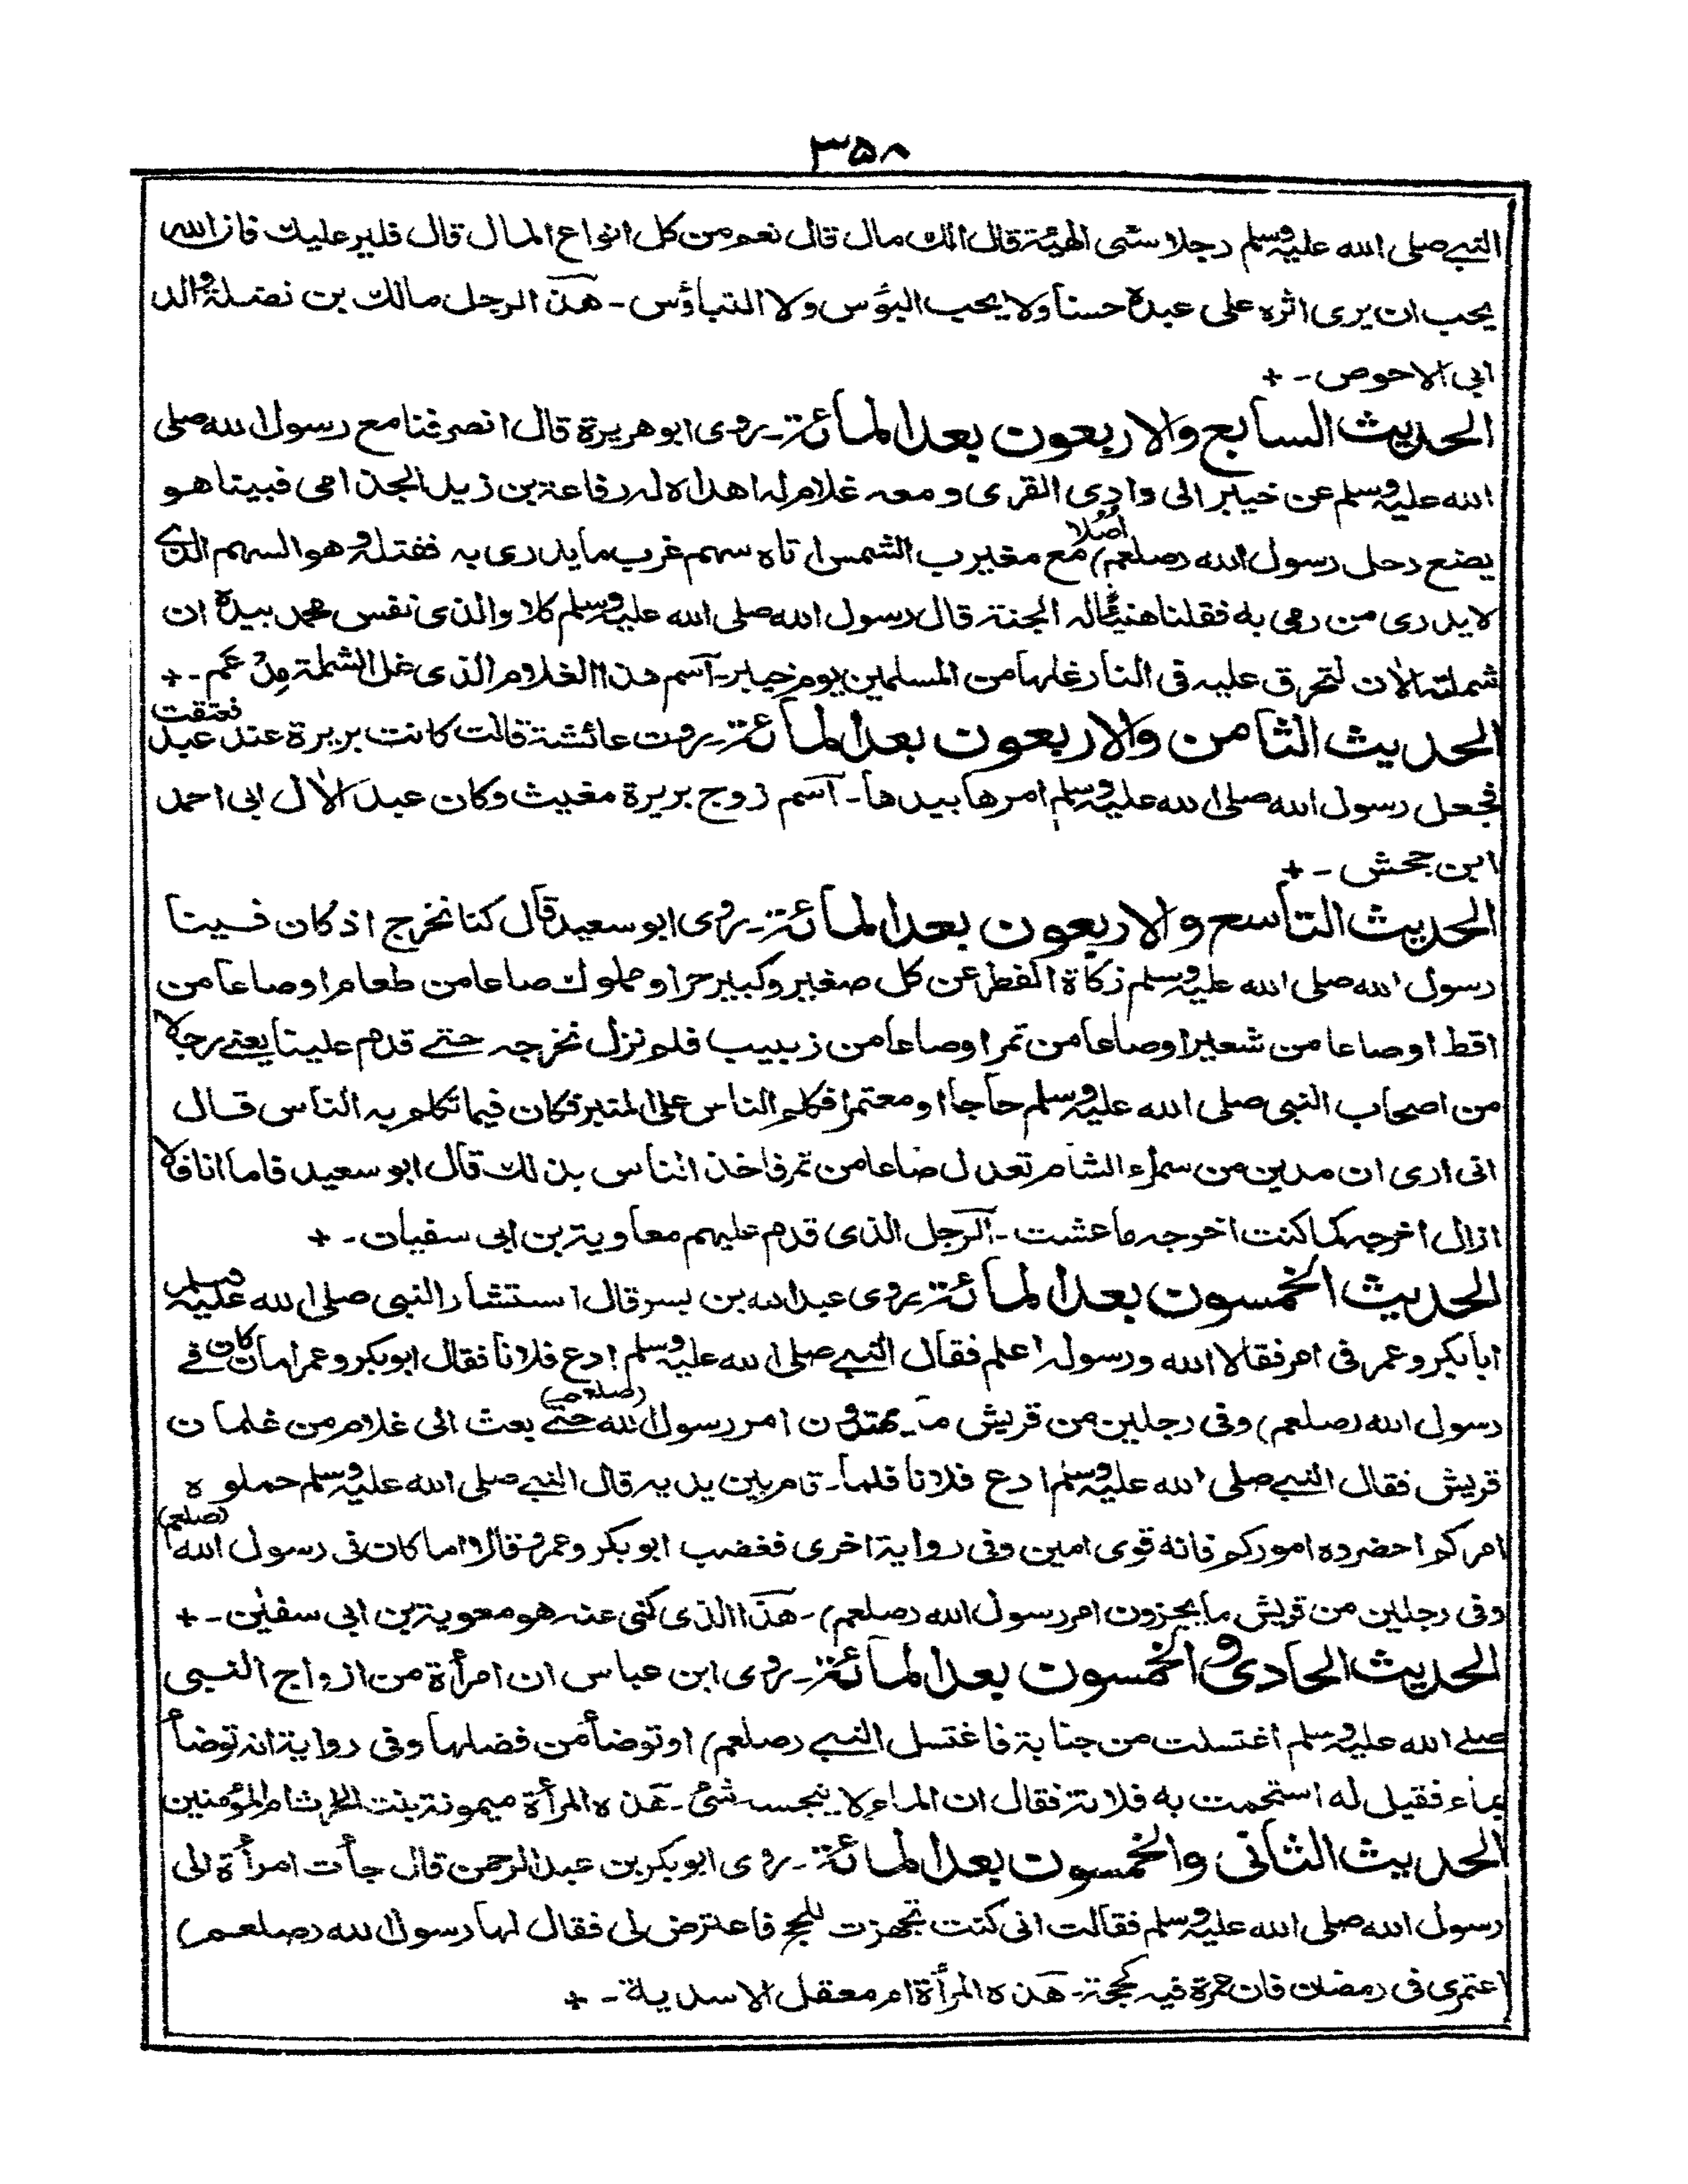 ٣٥٨
النبي صلى الله عليه وسلم رجلا سئى الهيئة قال الك مال قال نعم من كل انواع المال قال فلير عليك فان الله
يحب ان يرى اثره على عبده حسنا ولا يحب البؤس ولا التباؤس - هذا الرجل مالك بن نضلة والد
ابى الاحوص - +
الحديث السابع والاربعون بعد المائة - روى ابو هريرة قال انصرفنا مع رسول الله صلى
الله عليه وسلم عن خيبر الى وادى القرى ومعه غلام له اهداه له رفاعة بن زيد الجذامى فبينا هو
يضع رحل رسول الله (صلعم) اصلا مع مغيرب الشمس اتاه سهم غرب ما يدرى به فقتله وهو السهم الذى
لا يدرى من رمى به فقلنا هنيئا له الجنة قال رسول الله صلى الله عليه وسلم كلا والذى نفس محمد بيده ان
شملته الان لتحرق عليه فى النار غلها من المسلمين يوم خيبر - اسم هذا الغلام الذى غل الشملة مدعم - +
الحديث الثامن والاربعون بعد المائة - روت عائشة قالت كانت بريرة عند عبد فعتقت
فجعل رسول الله صلى الله عليه وسلم امرها بيدها - اسم زوج بريرة مغيث وكان عبد الال ابى احمد
ابن جحش - +
الحديث التاسع والاربعون بعد المائة - روى ابو سعيد قال كنا نخرج اذ كان فينا
رسول الله صلى الله عليه وسلم زكاة الفطر عن كل صغير وكبير حر او مملوك صاعا من طعام او صاعا من
اقط او صاعا من شعير او صاعا من تمر او صاعا من زبيب فلم نزل نخرجه حتى قدم علينا يعنى رجلا
من اصحاب النبى صلى الله عليه وسلم حاجا او معتمرا فكلم الناس على المنبر فكان فيما تكلم به الناس قال
انى ارى ان مدين من سمراء الشام تعدل صاعا من تمر فاخذ الناس بذلك قال ابو سعيد فاما انا فلا
ازال اخرجه كما كنت اخرجه ما عشت - الرجل الذى قدم عليهم معاوية بن ابى سفيان - +
الحديث الخمسون بعد المائة - روى عبد الله بن بسر قال استشار النبى صلى الله عليه وسلم
ابا بكر وعمر فى امر فقالا الله ورسوله اعلم فقال النبى صلى الله عليه وسلم ادع فلانا فقال ابو بكر وعمر اما كان فى
رسول الله (صلعم) وفى رجلين من قريش ما امر رسول الله (صلعم) حتى بعث الى غلام من غلمان
قريش فقال النبى صلى الله عليه وسلم ادع فلانا فلما - قام بين يديه قال النبى صلى الله عليه وسلم حملوه
امركم احضروه اموركم فانه قوى امين وفى رواية اخرى فغضب ابو بكر وعمر وقالا اما كان فى رسول الله (صلعم)
وفى رجلين من قريش ما يجزون امر رسول الله (صلعم) - هذا الذى كنى عنه هو معوية بن ابى سفين - +
الحديث الحادى والخمسون بعد المائة - روى ابن عباس ان امرأة من ازواج النبى
صلى الله عليه وسلم اغتسلت من جنابة فاغتسل النبى (صلعم) او توضأ من فضلها وفى رواية انه توضأ
بماء فقيل له استحمت به فلانة فقال ان الماء لا ينجسه شئ - هذه المرأة ميمونة بنت الحارث ام المؤمنين
الحديث الثانى والخمسون بعد المائة - روى ابو بكر بن عبد الرحمن قال جأت امرأة الى
رسول الله صلى الله عليه وسلم فقالت انى كنت تجهزت للحج فاعترض لى فقال لها رسول الله (صلعم)
اعتمرى فى رمضان فان عمرة فيه كحجة - هذه المرأة ام معقل الاسدية - +